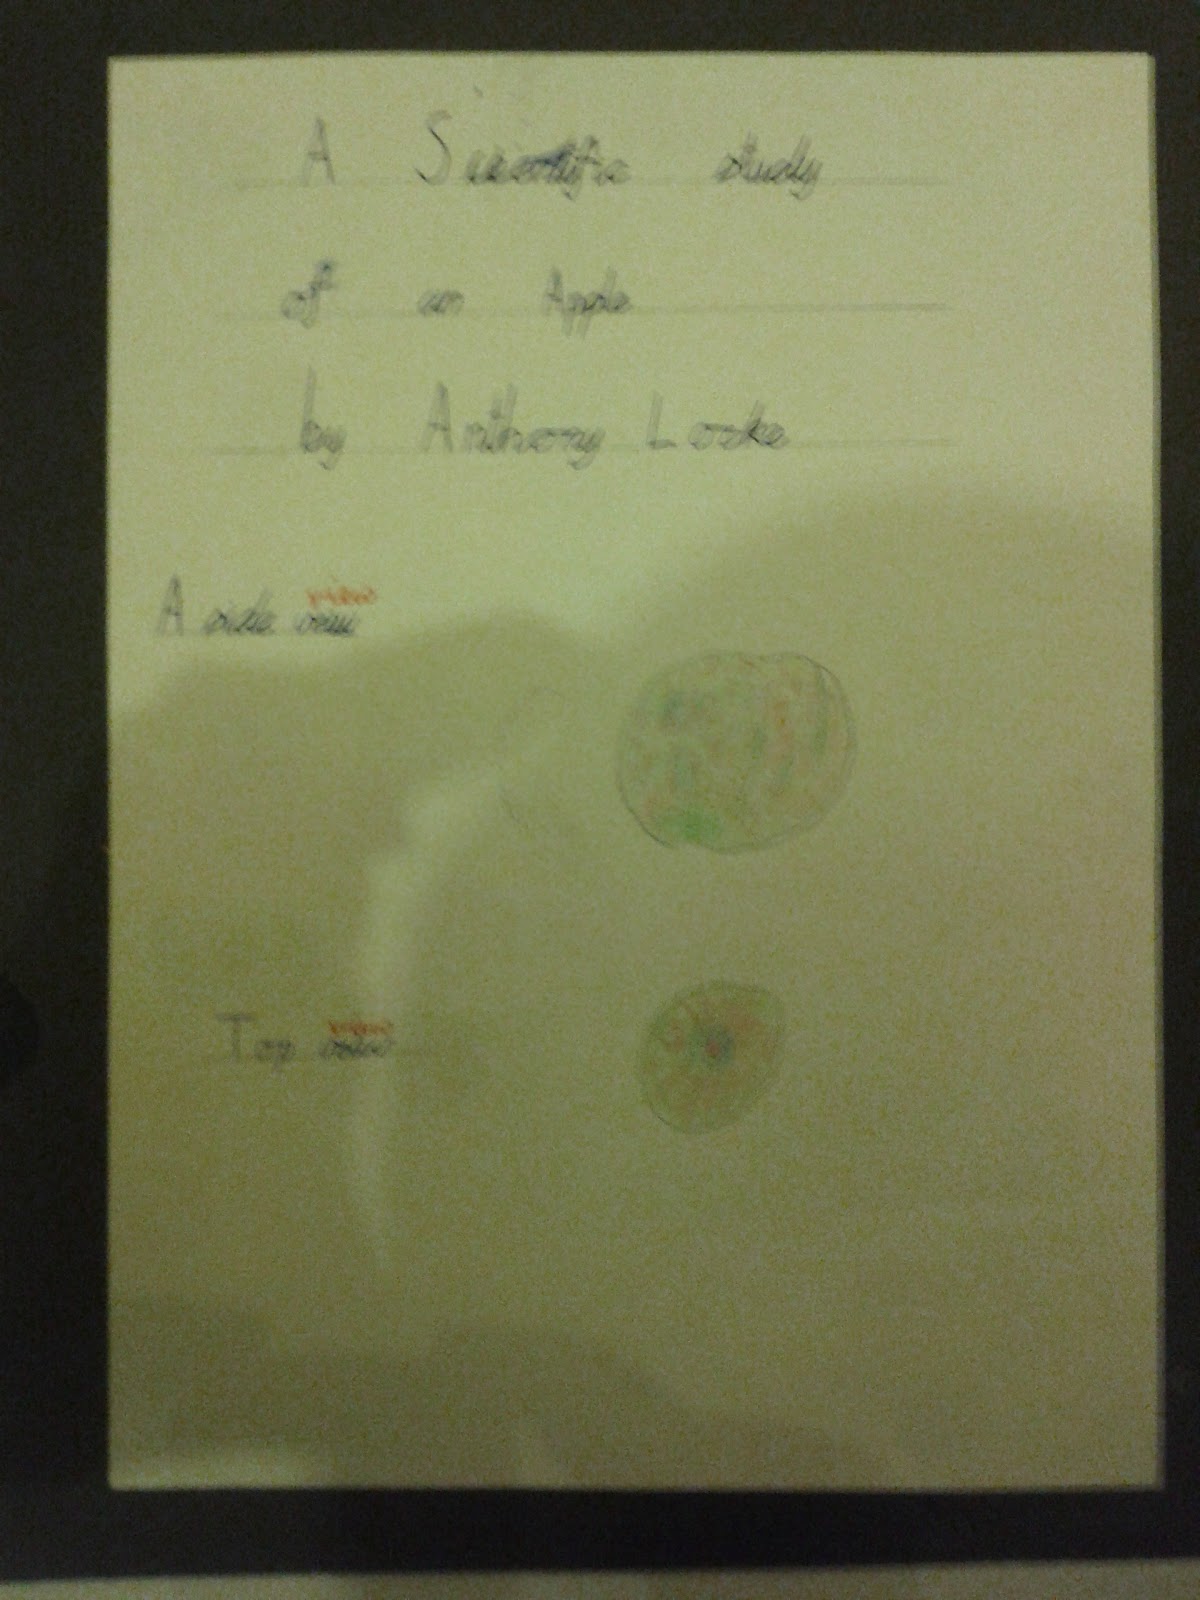 A Scientific study
of an Apple
by Anthony Locke
A side
Top